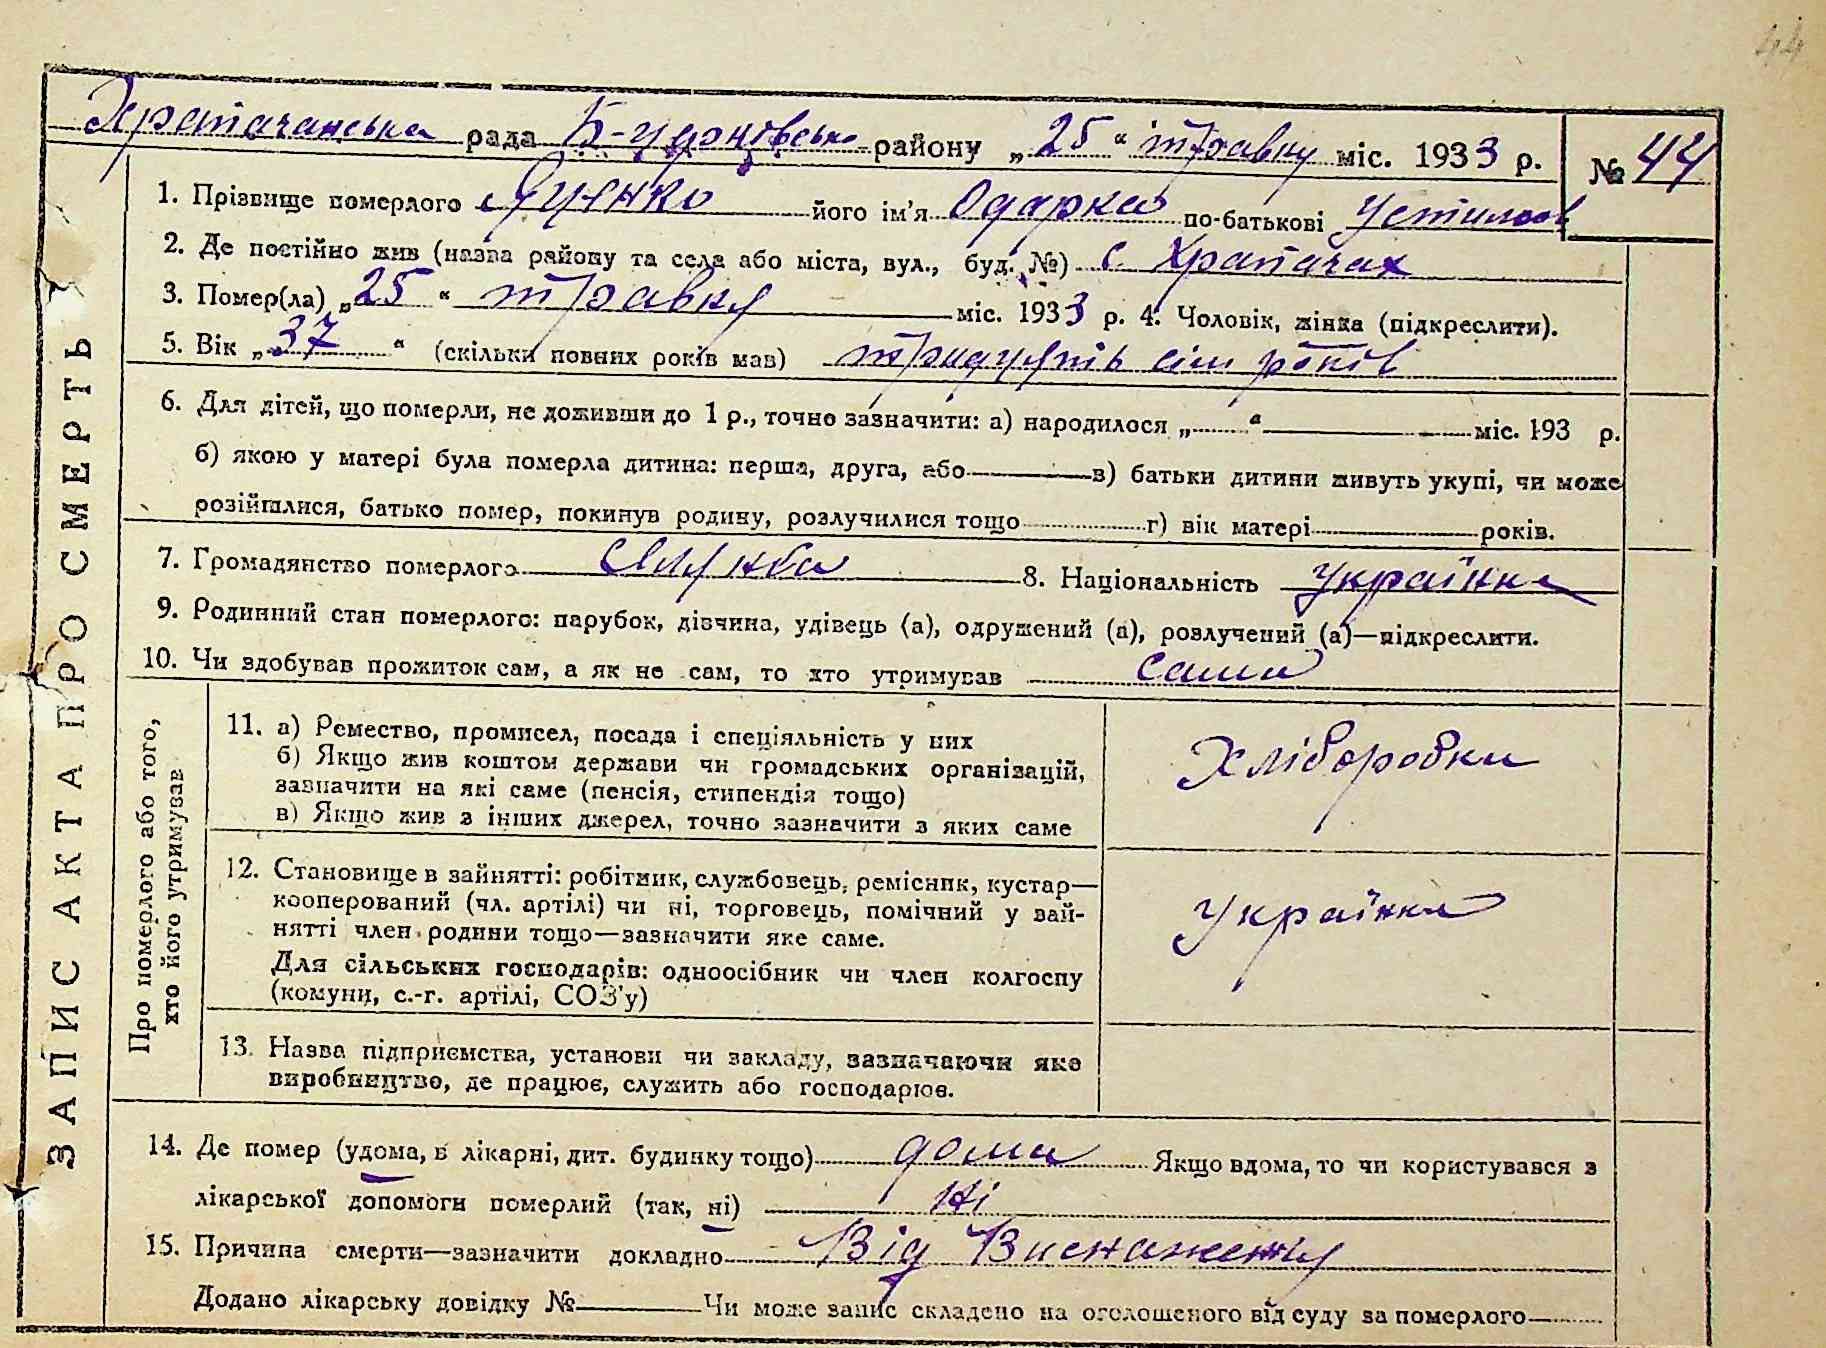 44
Храпачанська рада Б-Церківсько району „25“ травня міс. 1933 р. № 44
1. Прізвище померлого його ім'я Одарка по-батькові
2. Де постійно жив (назва району та села або міста, вул., буд. №) с. Храпачах
3. Помер(ла) „25“ травня міс. 1933 р. 4. Чоловік, жінка (підкреслити).
5. Вік „37“ (скільки повних років мав) тридцять сім років
6. Для дітей, що померли, не доживши до 1 р., точно зазначити: а) народилося „ “ міс. 193 р.
б) якою у матері була померла дитина: перша, друга, або в) батьки дитини живуть укупі, чи може
розійшлися, батько помер, покинув родину, розлучилися тощо г) вік матері років.
7. Громадянство померлого 8. Національність українка
9. Родинний стан померлого: парубок, дівчина, удівець (а), одружений (а), розлучений (а)—підкреслити.
10. Чи здобував прожиток сам, а як не сам, то хто утримував сама
11. а) Ремество, промисел, посада і спеціяльність у них
б) Якщо жив коштом держави чи громадських організацій,
зазначити на які саме (пенсія, стипендія тощо)
в) Якщо жив з інших джерел, точно зазначити з яких саме
Хліборобка
12. Становище в зайнятті: робітник, службовець, ремісник, кустар—
кооперований (чл. артілі) чи ні, торговець, помічний у зай-
нятті член родини тощо—зазначити яке саме.
Для сільських господарів: одноосібник чи член колгоспу
(комуни, с.-г. артілі, СОЗ'у)
Українка
13. Назва підприємства, установи чи закладу, зазначаючи яке
виробництво, де працює, служить або господарює.
14. Де помер (удома, в лікарні, дит. будинку тощо) дома Якщо вдома, то чи користувався з
лікарської допомоги померлий (так, ні) Ні
15. Причина смерти—зазначити докладно Від Виснаження
Додано лікарську довідку № Чи може запис складено на оголошеного від суду за померлого
ЗАПИС АКТА ПРО СМЕРТЬ
Про померлого або того,
хто його утримував